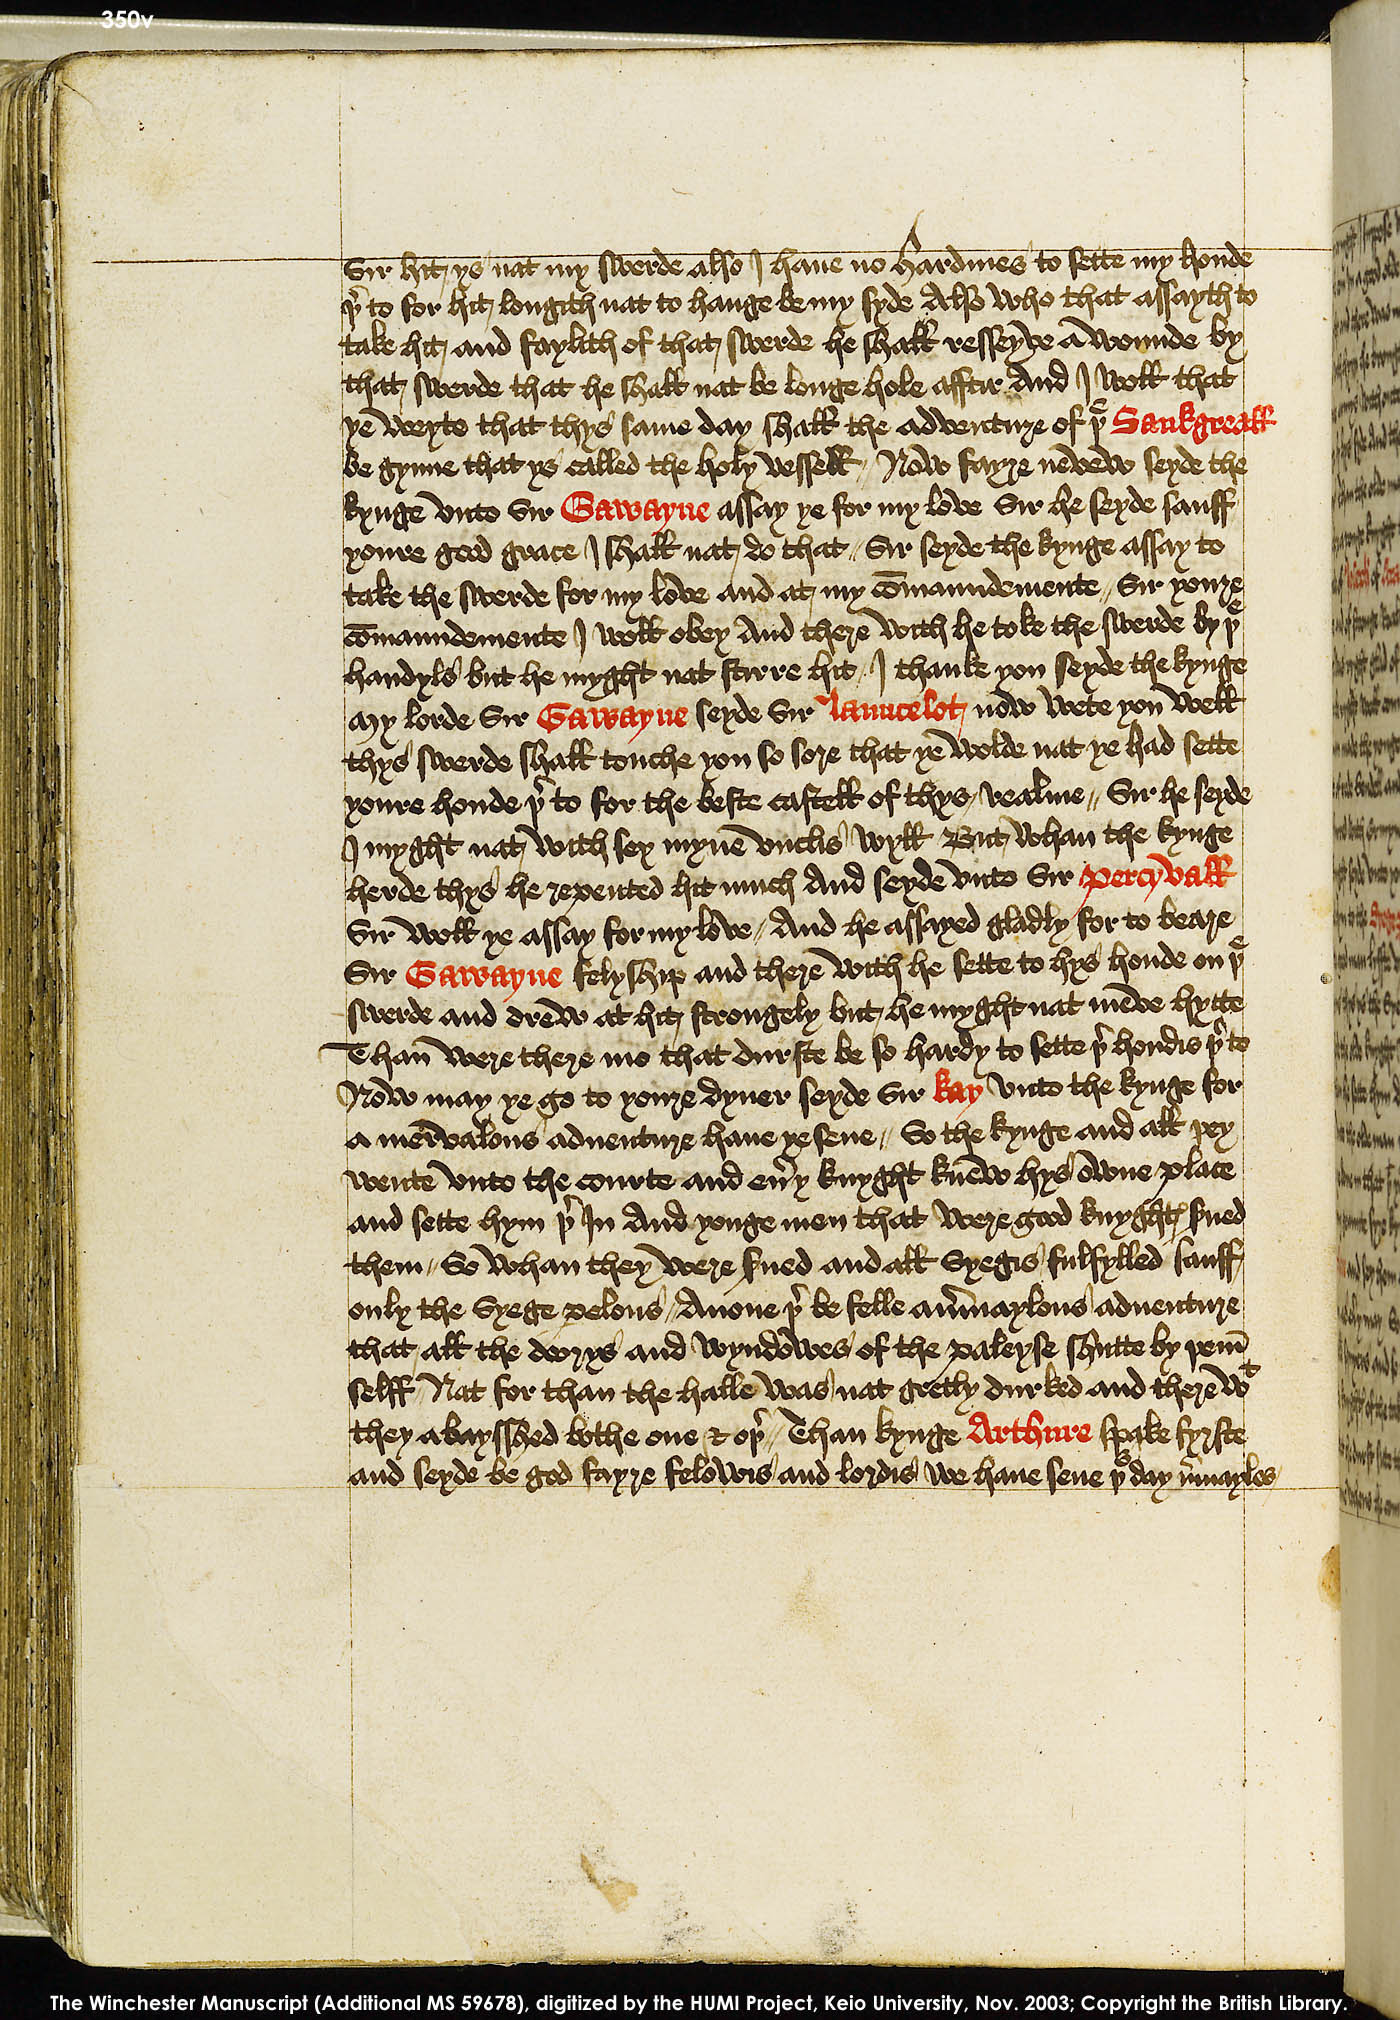 350v
Sir hit ys nat my swerde also I haue no hardines to sette my honde
þ'to for hit longith nat to hange be my syde Also who that assayth to
take hit and faylith of that swerde he shall resseyve a wounde by
that swerde that he shall nat be longe hole afftir And I woll that
ye weyte that thys same day shall the adventure of þe Sankgreall
be gynne that ys called the holy vessell // Now fayre nevew seyde the
kynge vnto Sir Gawayne assay ye for my love Sir he seyde sauff
youre good grace I shall nat do that // Sir seyde the kynge assay to
take the swerde for my love and at my cōmaundemente // Sir youre
cōmaundemente I woll obey And there with he toke the swerde by þe
handyls but he myght nat stirre hit / I thanke you seyde the kynge
My lorde Sir Gawayne seyde Sir launcelot now wete you well
thys swerde shall touche you so sore that ye wolde nat ye had sette
youre honde þ'to for the beste castell of thys realme // Sir he seyde
I myght nat with sey myne vnclis wyll But whan the kynge
herde thys he repented hit much And seyde vnto Sir Percyvall
Sir woll ye assay for my love // And he assayed gladly for to beare
Sir Gawayne felyship and there with he sette to hys honde on þe
swerde and drew at hit strongely but he myght nat meve hytte
Than were there mo that durste be so hardy to sette þ' hondis þ'to
Now may ye go to youre dyner seyde Sir kay vnto the kynge for
a mervalous aduenture haue ye sene // So the kynge and all þey
wente vnto the courte and eu'y knyght knew hys owne place
and sette hym þ' In And yonge men that were good knyght' s'ued
them // So whan they were s'ued and all Syegis fulfylled sauff
only the Syege p'elous // Anone þ' be felle a m'uaylous aduenture
that all the dorrys and wyndowes of the paleyse shutte by þem̄
selff Nat for than the halle was nat gretly durked and there wt
they abaysshed bothe one & oþ' // Than kynge Arthure spake fyrste
and seyde be god fayre felowis and lordis we haue sene þs day m'uayles
The Winchester Manuscript (Additional MS 59678), digitized by the HUMI Project, Keio University, Nov. 2003; Copyright the British Library.